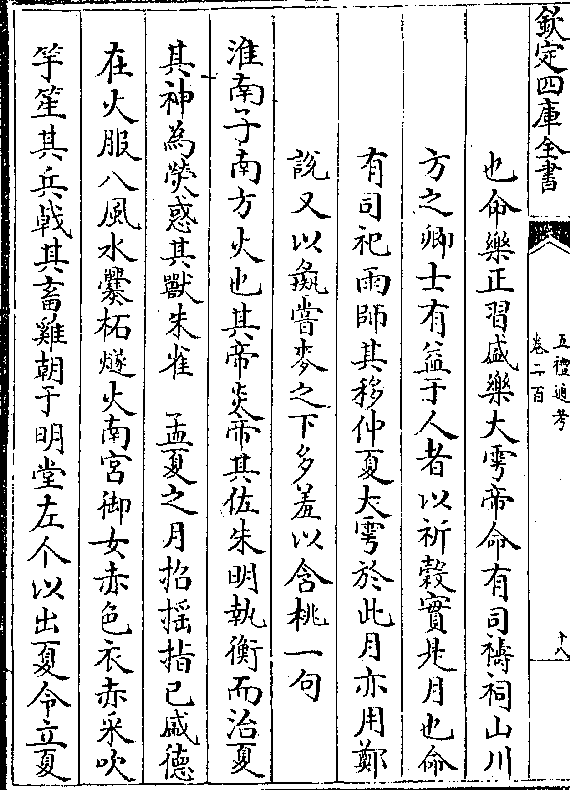 欽定四庫全書
五禮通考
卷二百
十八
也命樂正習盛樂大雩帝命有司禱祠山川
方之卿士有益于人者以祈穀實是月也命
有司祀雨師其移仲夏大雩於此月亦用鄭
說又以彘嘗麥之下多羞以含桃一句
淮南子南方火也其帝炎帝其佐朱明執衡而治夏
其神為熒惑其獸朱雀 孟夏之月招搖指已盛德
在火服八風水爨柘燧火南宮御女赤色衣赤采吹
竽笙其兵㦸其畜雞朝于明堂左个以出夏令立夏